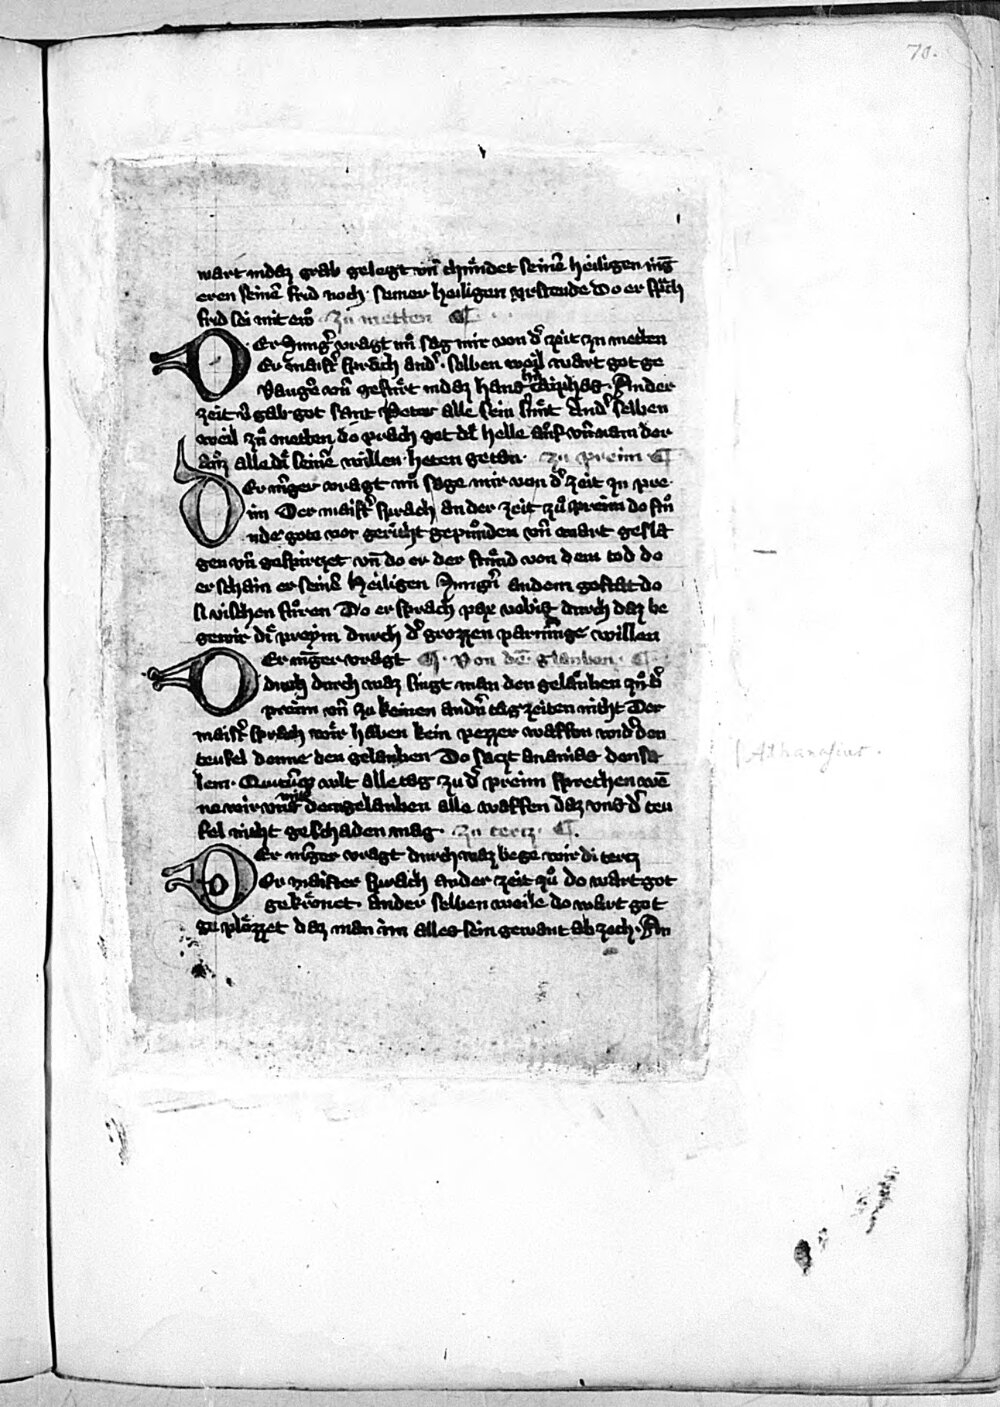 70.
wart in daz grab gelegt vn̄ chu̍ndet seinē heiligen inḡ
eren seinē frid noch seiner heiligen vrstende do er sprͣch
frid sei mit eẘ zu metten ¶
DEr Jungˀ vragt nu̍ sag mir von dˀ zeit zu metten
Er maistˀ sprach andˀ selben weil wart got ge
vangē vn̄ gefuͤrt in daz haus Caiphas. An der
zeit gab got sant Peter alle sein An dˀ selben
weil zu metten do prach got di helle auf vn̄ nam der
auz alle di seinē willen heten getan. zu preim ¶
DEr iu̍nger vragt nu̍ sage mir von dˀ zeit zu pre
im Der maistˀ sprach an der zeit zu̍ preim do stu̍
nde gote vor gericht gepu̍nden vn̄ wart gesla
gen vn̄ gespirczet vn̄ do er der stu̍nd von dem tod do
er schain er seinē heiligen Jungˀn an dem gestat do
si vischen fůren Do er sprach pax vobis durch daz be
gewir di preym durch dˀ grozzen parmu̍nge willen
DEr iūger vragt ¶. Von dē glauben. ¶
durch durch waz singt man den gelauben zu̍ dˀ
preim vn̄ zu keinen andˀn tagzeiten nicht Der
maistˀ sprach wir haben kein pezzer waffen widˀ den
teufel denne den gelauben Do saczt ananias den sa
lem. Quicu̍qꝫ vult alle tag zu dˀ preim sprechen wē
ne wir mit dem gelauben alle waffen daz vns dˀ teu
fel nicht geschaden mag. zu tercz. ¶.
DEr iu̍nger vragt durch waz bege wir di tercz
Er maister sprach an der zeit zu̍ do wart got
gekrönet. an der selben weile do wart got
ge plözzet daz man im alles sein gewant ab zoch. An
Athanasius.